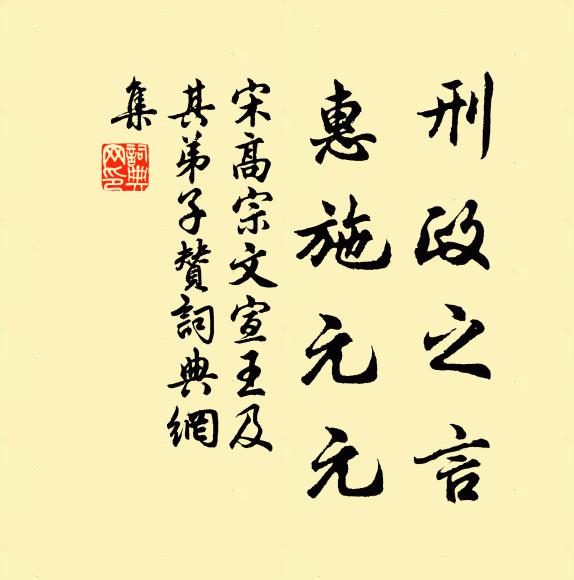 刑政之言
惠施元元
宋高宗文宣王及
其弟子赞詞典網
集
詞典網印